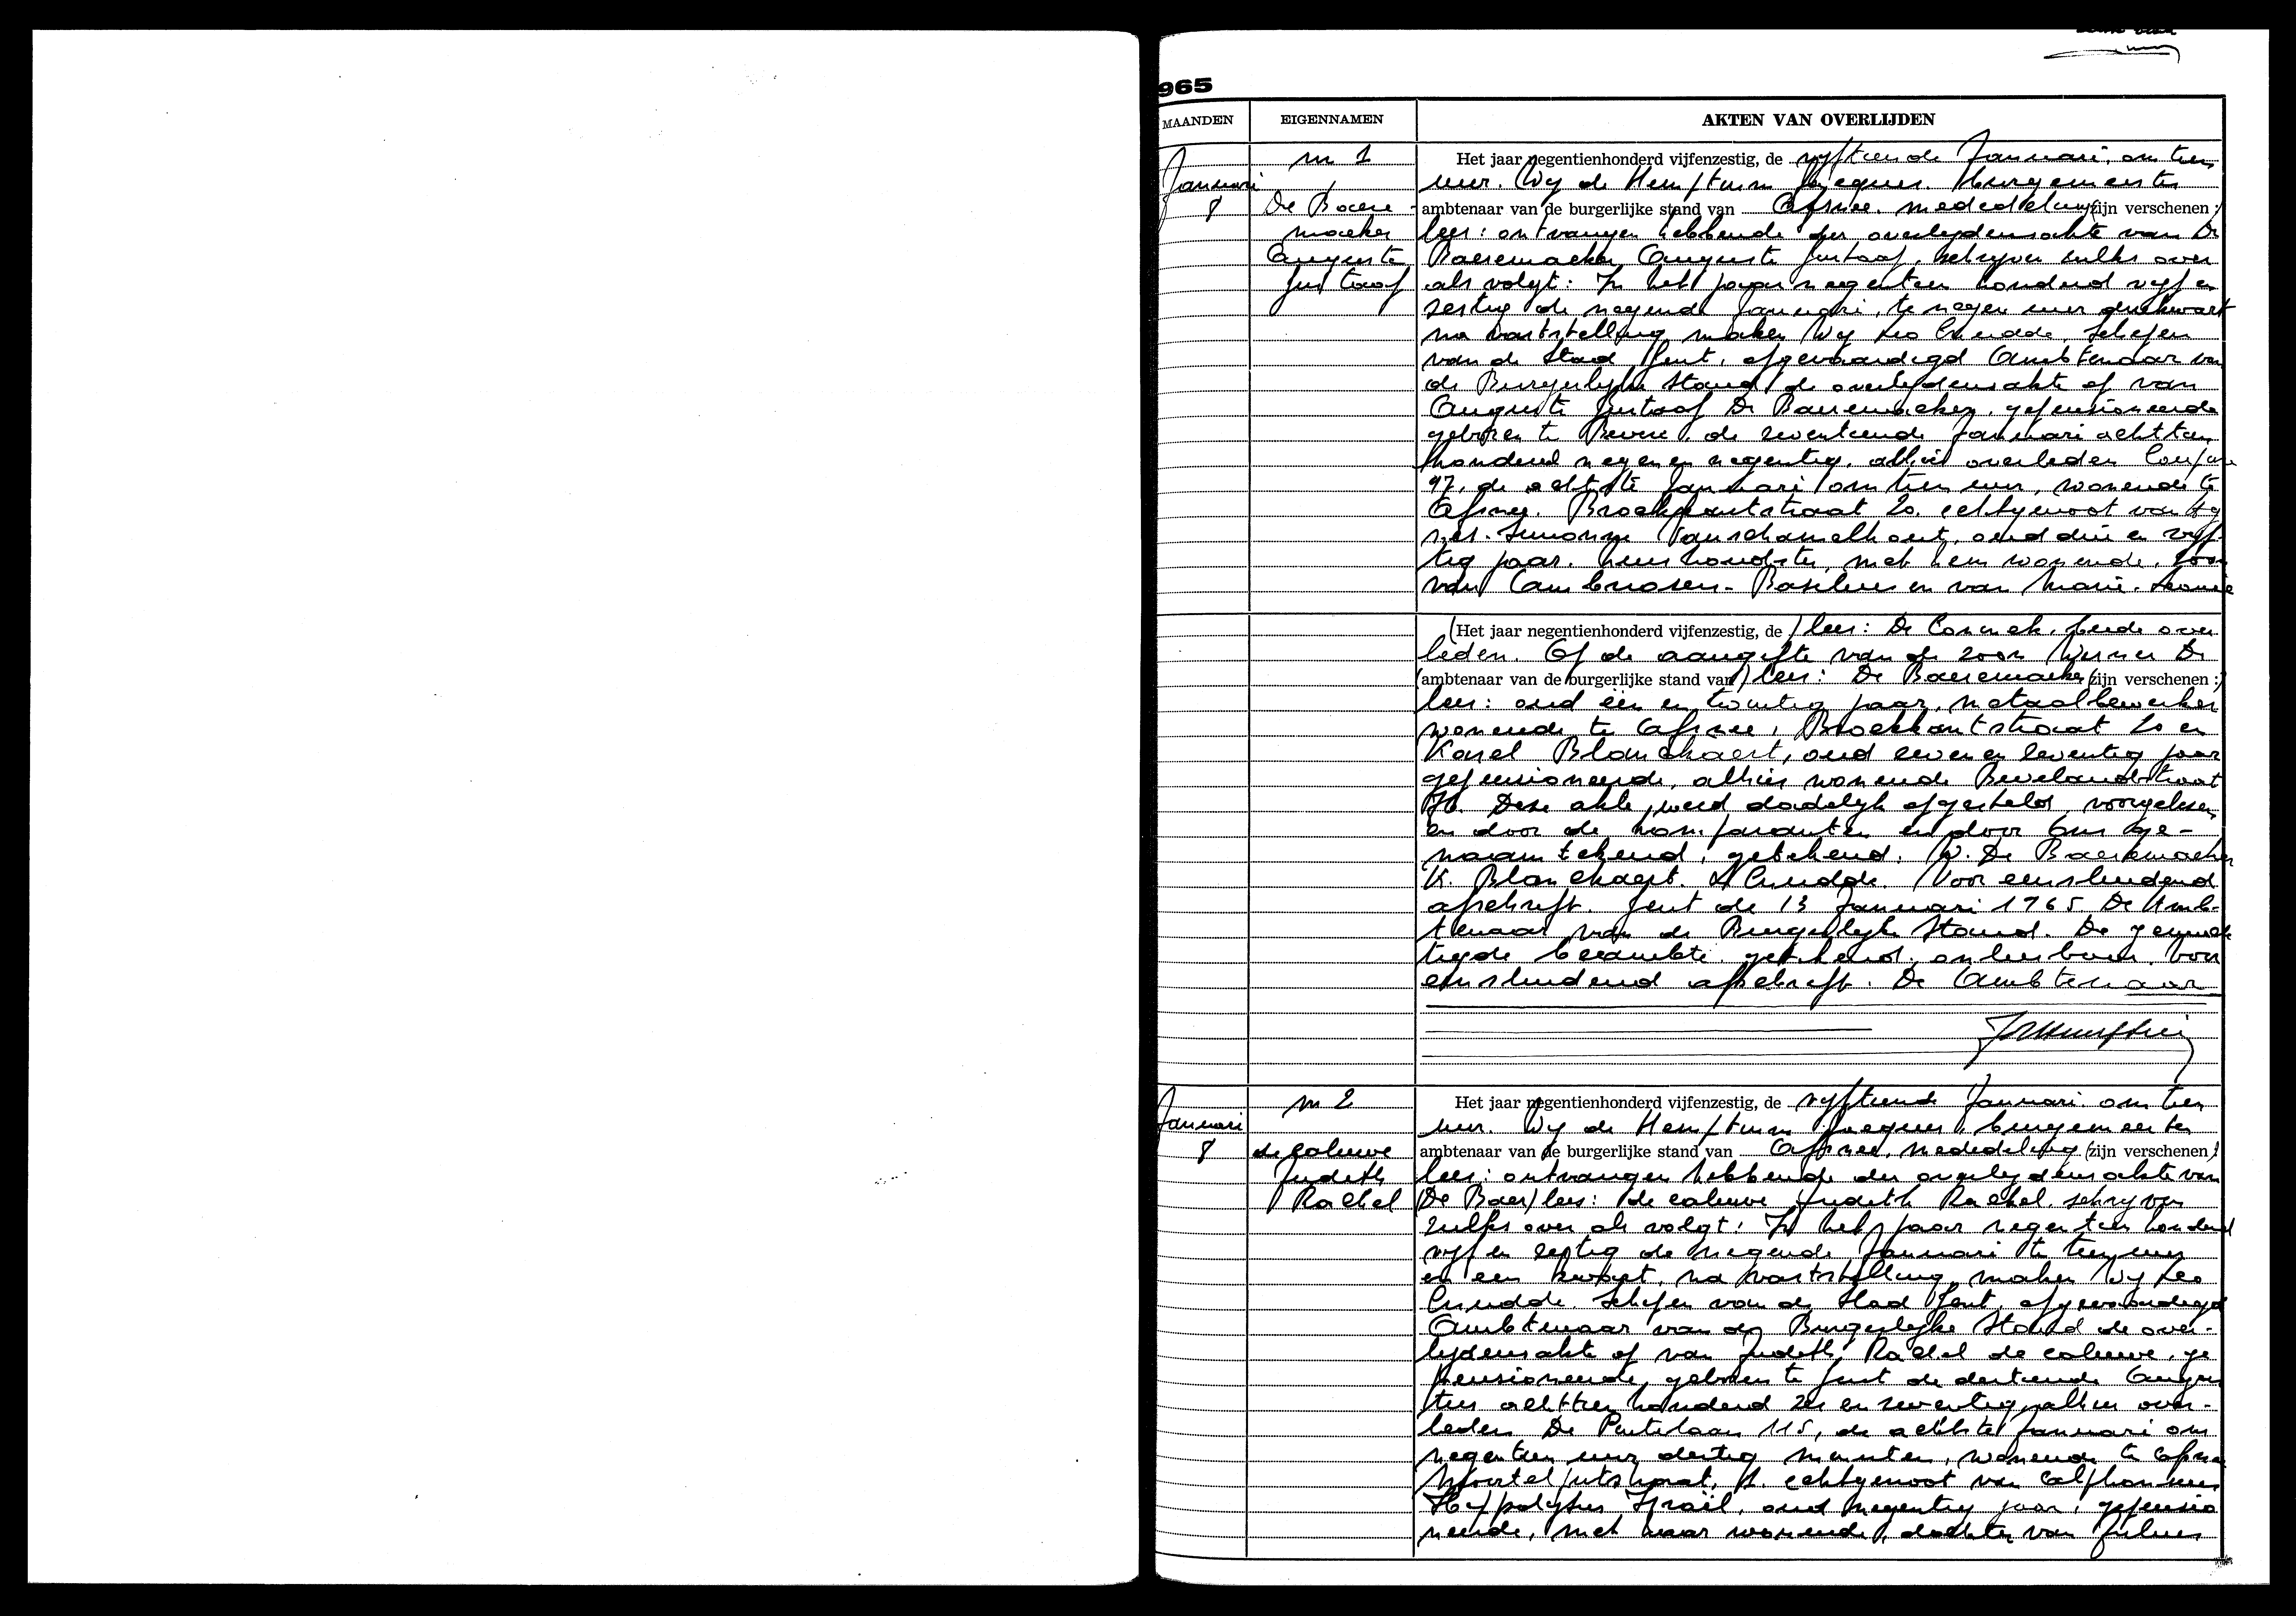 965
MAANDEN EIGENNAMEN AKTEN VAN OVERLIJDEN
Januari
8
n 1
De Baere-
maeker
Auguste
Gustaaf
Het jaar negentienhonderd vijfenzestig, de vyftiende Januari, om tien
uur. Wy de Hemptinne Jacques. Burgemeester
ambtenaar van de burgerlijke stand van Afsnee. mededeling (zijn verschenen:)
lees: ontvangen hebbende der overlydensakte van De
Baeremaeker Auguste Gustaaf, schryven zulks over
als volgt: In het jaar negentien honderd vyf en
zestig de negende Januari, te negen uur driekwart
na vaststelling maken Wy Leo Cnudde, Schepen
van de Stad Gent, afgevaardigd Ambtenaar van
de Burgerlyke Stand de overlydensakte op van
Auguste Gustaaf De Baeremaeker, gepensioneerde
geboren te Bevere, de zeventiende Januari achttien
honderd negen en negentig, alhier overleden
97, de achtste Januari om tien uur, wonende te
Afsnee. Broekkantstraat 20, echtgenoot van Ag
nes-Simonne Vanschamelhout, oud drie en vyf-
tig jaar, huishoudster, met hem wonende, zoon
van Ambrosen-Basilius en van Marie-Leonie
(Het jaar negentienhonderd vijfenzestig, de) lees: De Coninck, beide over
leden. Op de aangifte van de zoon Werner De
(ambtenaar van de burgerlijke stand van) lees: De Baeremaeker (zijn verschenen:)
lees: oud één en twintig jaar, metaalbewerker
wonende te Afsnee, Broekkantstraat 20 en
Karel Blanckaert, oud zeven en zeventig jaar
gepensioneerde, alhier wonende Bevelandstraat
Deze akte werd dadelyk opgesteld, voorgelezen
en door de komparanten en door Ons ge-
naamtekend, getekend. W. De Baeremaeker
K. Blanckaert. L Cnudde. Voor eensluidend
afschrift. Gent de 13 Januari 1965 De Amb-
tenaar van de Burgerlyke Stand. De gemach
tigde beambte getekend, onleesbaar. Voor
eensluidend afschrift. De Ambtenaar
Januari
8
n 2
de caluwe
Judith
Rachel
Het jaar negentienhonderd vijfenzestig, de vyftiende Januari, om tien
uur. Wy de Hemptinne Jacques, burgemeester
ambtenaar van de burgerlijke stand van Afsnee, mededeling (zijn verschenen)
lees: ontvangen hebbende der overlydensakte van
(De Baer) lees: de caluwe Judith Rachel, schryven
zulks over als volgt: In het jaar negentien honderd
vyf en zestig de negende Januari te tien uur
en een kwart, na vaststelling, maken Wy Leo
Cnudde. Schepen van de Stad Gent, afgevaardigd
Ambtenaar van de Burgerlyke Stand de over-
lydensakte op van Judith, Rachel de caluwe, ge
pensioneerde, geboren te Gent de dertiende Augus
tus achttien honderd zes en zeventig, alhier over-
leden De Pintelaan 115, de achtste Januari om
negentien uur dertig minuten, wonende te Afsnee
Mortelputstraat, echtgenoot van Alphonsius
Hyppolytus Israël, oud negentig jaar, gepensio
neerde, met haar wonende, dochter van Julius